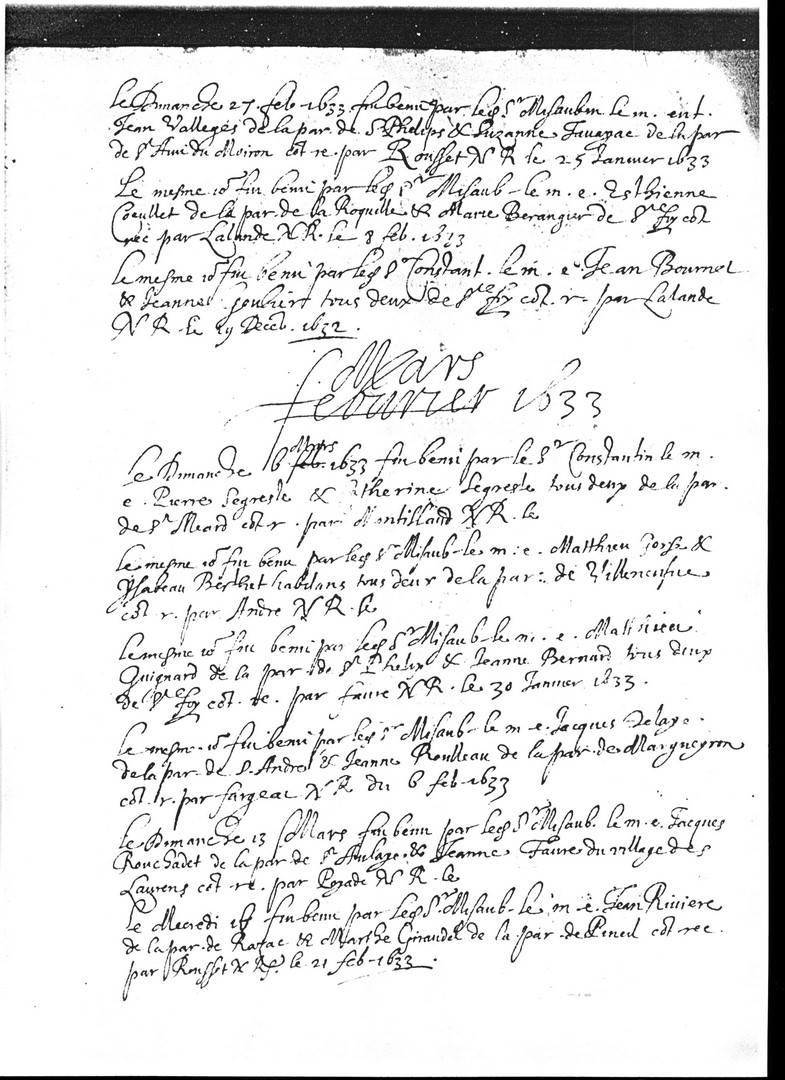 Le Dimanche 27. feb. 1633 fut beni par led Sr Misaubin le m. ent.
Jean Valleges de la par. de St Phelips & Suzanne Fauarac de la par
de St Avi du Moiron cot re. par Rousset N R le 25 Janvier 1633
Le mesme ior fut beni par led Sr Misaub. le m. e. Esthienne
Coeullet de la par. de la Roquille & Marie Berangier de Ste foy cot
rec par Lalande N R. le 8 feb. 1633
Le mesme ior fut beni par led Sr Constant. le m. e. Jean Bournet
& Jeanne Soubiert tous deux de Ste foy cot. r. par Lalande
N R. le 19 Deceb. 1632.
Mars
febvrier 1633
Mars
Le Dimanche 6 feb. 1633 fut beni par le Sr Constantin le m.
e. Pierre Segreste & Catherine Segreste tous deux de la par.
de St Meard cot r. par Montilland N R. le
Le mesme ior fut beni par led Sr Misaub. le m. e. Matthieu &
Ysabeau Berthet habitans tous deux de la par. de Villeneufve
cot r. par Andre N R. le
Le mesme ior fut beni par led Sr Misaub. le m. e. Matthieu
Guignard de la par. de St Phelix & Jeanne Bernard tous deux
de Ste foy cot. re. par faure N R. le 30 Janvier 1633.
Le mesme ior fut beni par led Sr Misaub. le m e. Jacques Delage.
de la par. de S. Andre & Jeanne Roulleau de la par. de Margueyron
cot. r. par fargeac N R du 6 feb. 1633
Le Dimanche 13 Mars fut beni par led Sr Misaub. le m. e. Jacques
Rouchadet de la par. de St Aulaye & Jeanne Faure du village des
Laurens cot re. par Peyrade N R. le
Le Mecredi 16 fut beni par led Sr Misaub. le m. e. Jean Riviere
de la par. de Razac & Marthe Giraudel de la par. de Pineil cot rec.
par Rousset N R. le 21 feb. 1633.